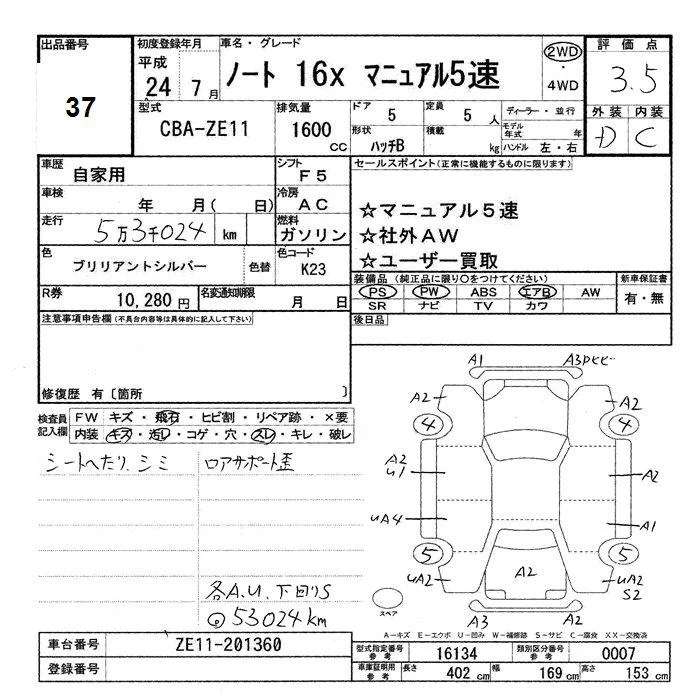 出品番号
37
初度登録年月
平成
24 7月
車名・グレード
ノート 16x マニュアル5速
2WD
・
4WD
評価点
3.5
型式
CBA-ZE11
排気量
1600
cc
ドア 5
定員 5 人
形状 ハッチB
積載 kg
ディーラー・並行
モデル年式 年
ハンドル 左・右
外装 内装
D C
車歴
自家用
シフト
F5
セールスポイント(正常に機能するものに限ります)
車検
年 月( 日)
冷房
AC
☆マニュアル5速
☆社外AW
☆ユーザー買取
走行
5万3千024 km
燃料
ガソリン
色
ブリリアントシルバー
色替
色コード
K23
装備品(純正品に限り○をつけてください)
PS PW ABS エアB AW
SR ナビ TV カワ
新車保証書
有・無
R券
10,280円
名変通知期限
月 日
後日品
注意事項申告欄(不具合内容等は具体的に記入して下さい)
修復歴 有〔箇所 〕
検査員記入欄
FW キズ・飛石・ヒビ割・リペア跡・×要
内装 キズ・汚レ・コゲ・穴・スレ・キレ・破レ
シートへたり、シミ
ロアサポート歪
各A.U、下回りS
53024km
A1 A3
A2 A2
4 4
A2
U1
A2
UA4 A1
5 5
UA2 A2 UA2
S2
スペア
A3 A2
A-キズ E-エクボ U-凹み W-補修跡 S-サビ C-腐食 XX-交換済
車台番号
ZE11-201360
登録番号
型式指定番号参考
16134
類別区分番号参考
0007
車庫証明用参考
長さ 402 cm
幅 169 cm
高さ 153 cm